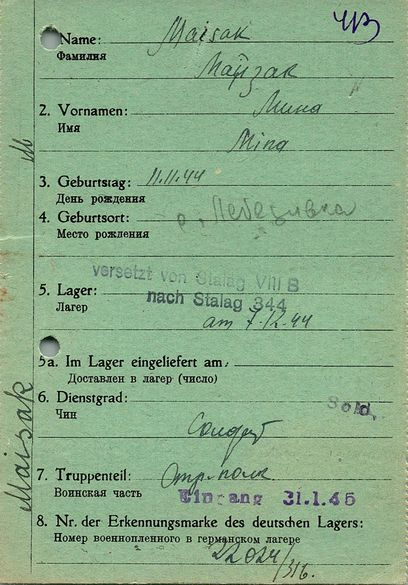 Name: Maisak
Фамилия Майзак
2. Vornamen: Мина
Имя Mina
3. Geburtstag: 11.11.44
День рождения
4. Geburtsort:
Место рождения
versetzt von Stalag VIII B
nach Stalag 344
5. Lager:
Лагер am 7.12.44
5a. Im Lager eingeliefert am:
Доставлен в лагер (число)
6. Dienstgrad: Sold.
Чин Солдат
7. Truppenteil: Стр. полк
Воинская часть Eingang 31.1.45
8. Nr. der Erkennungsmarke des deutschen Lagers:
Номер военнопленного в германском лагере
Maisak